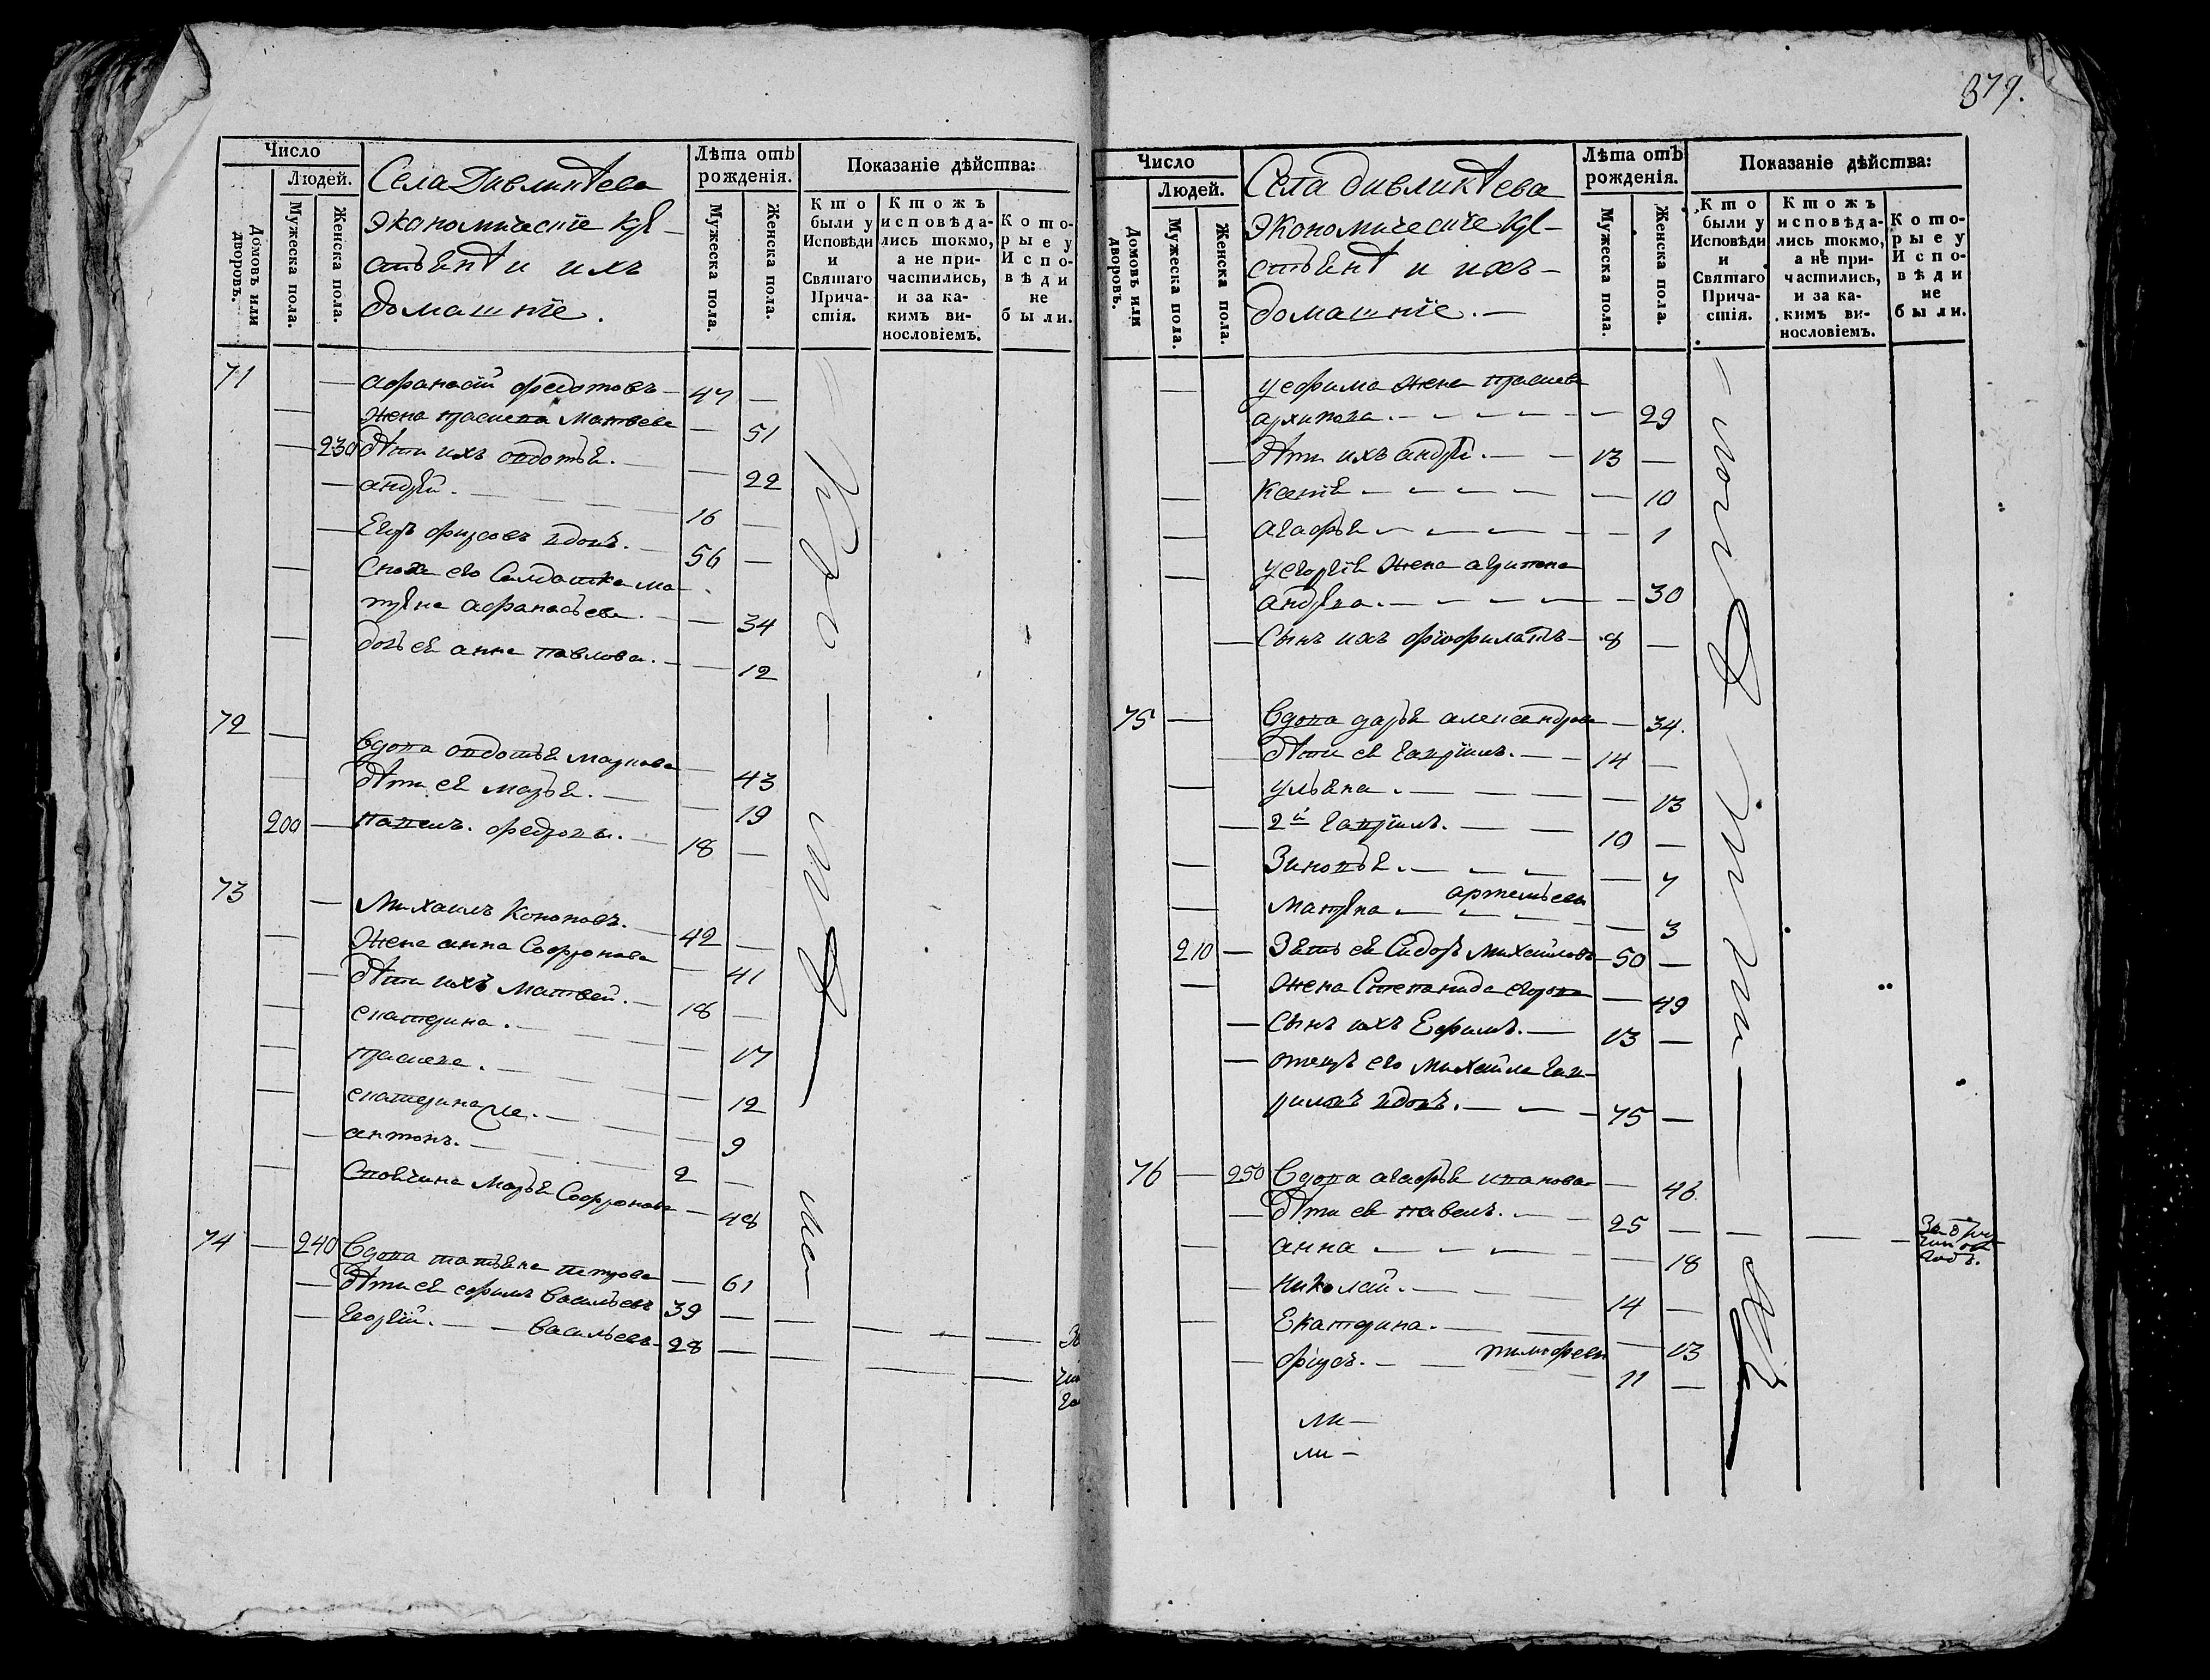 879.
Число
Людей.
Домовъ или дворовъ.
Мужеска пола.
Женска пола.
Села Дивликѣева
экономическіе кре-
стьянѣ и ихъ
домашніе.
Лѣта отъ рожденія.
Мужеска пола.
Женска пола.
Показаніе дѣйства:
Кто были у Исповѣди и Святаго Прича-стія.
Ктожъ исповѣда-лись токмо, а не при-частились, и за ка-кимъ ви-нословіемъ.
Кото-рые у Испо-вѣди не были.
71 — афанасій федотовъ — 47 —
— жена прасковя Матвеева — 51
— 230 дѣти ихъ овдотья. — 22
— андрей. — 16 —
— Егоръ фирсовъ вдовъ. — 56 —
— Сноха его Салдатка ма-
трена афанасьева. — 34
— дочь ея анна павлова. — 12
72 — вдова овдотья маркова — 43
— дѣти ея марья. — 19
200 — павелъ. федоровы. — 18 —
73 — Михаилъ Кononовъ. — 42 —
— жена анна Софронова — 41
— дѣти ихъ матвей. — 18 —
— екатерина. — 17
— прасковя. — 12
— екатерина же. — 9
— антонъ. — 2 —
— Своячина Марья Софронова — 48
74 — 240 вдова татьяна петрова — 61
— дѣти ея ефимъ васильевъ 39 —
— Георгій. — васильевъ — 28 —
Число
Людей.
Домовъ или дворовъ.
Мужеска пола.
Женска пола.
Села дивликѣева
экономическіе кре-
стьянѣ и ихъ-
домашніе. —
Лѣта отъ рожденія.
Мужеска пола.
Женска пола.
Показаніе дѣйства:
Кто были у Исповѣди и Святаго Прича-стія.
Ктожъ исповѣда-лись токмо, а не при-частились, и за ка-кимъ ви-нословіемъ.
Кото-рые у Испо-вѣди не были.
— уефима жена прасковя
архипова. — 29
— дѣти ихъ андрей. — 13 —
— Ксенія — 10
агафья — 1
— уегоргія жена акулина
андреева. — 30
— Сынъ ихъ феофилатъ — 8 —
75 — вдова дарья александрова — 34.
— дѣти ея гаврилъ. — 14 —
— ульяна. — 13
— 2й гаврилъ. — 10 —
— Зиновья. — 7
— матрена — артемьевы — 3
210 — Зять ея Сидоръ михайловъ — 50 —
— жена Степанида егорова — 49
— сынъ ихъ Ефимъ. — 13 —
— отецъ его михайла гав-
риловъ вдовъ. — 75 —
76 — 250 вдова агафья иванова — 46
— дѣти ея павелъ. — 25 —
— анна — 18
— николай. — 14 —
— Екатерина. — 13
— фирсъ. — тимофеевы 11 —